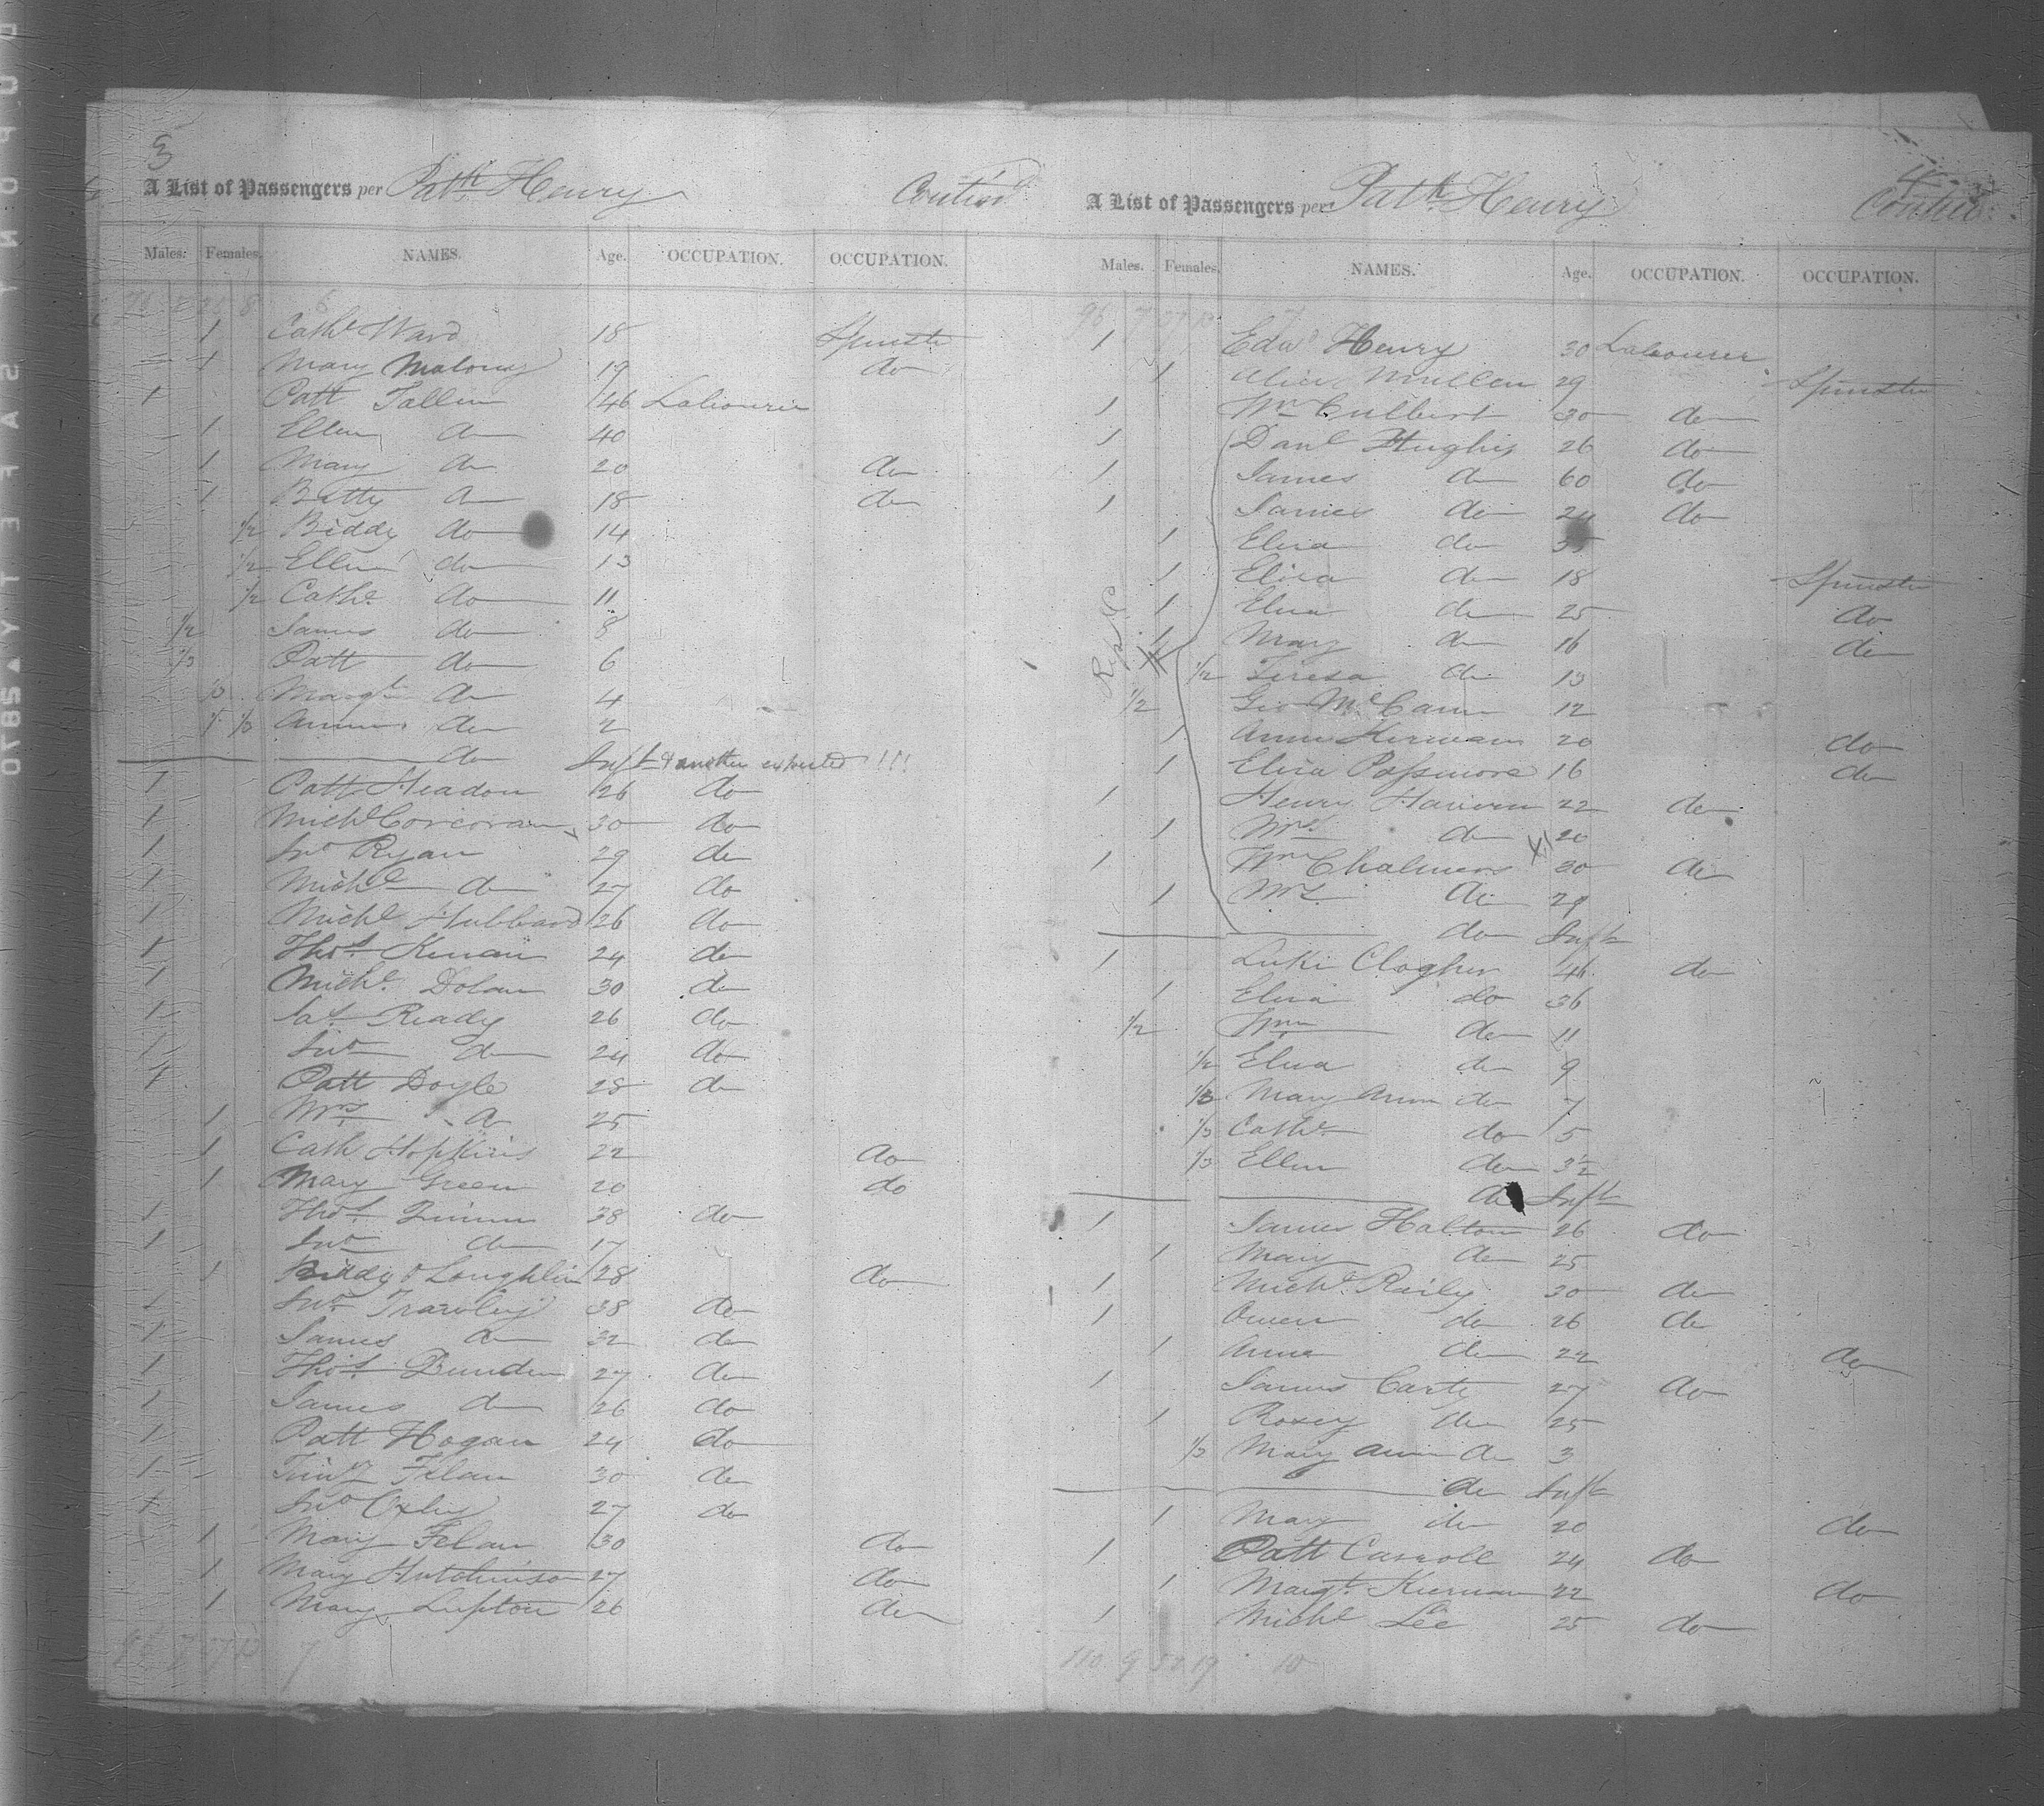 3
A List of Passengers per Patk. Henry Contind
Males. Females. NAMES. Age. OCCUPATION. OCCUPATION.
1 Cathe Ward 18 Spinster
1 Mary Malony 19 do
1 Patt Fallen 46 Labourer
1 Ellen do 40
1 Mary do 20 do
1 Betty do 18 do
1/2 Biddy do 14
1/2 Ellen do 13
1/2 Cathe do 11
1/2 James do 8
1/3 Patt do 6
1/3 Margt do 4
1/3 do 2
do Inft & another expected !!!
1 Patt Headon 26 do
1 Michl Corcoran 30 do
1 Jno Ryan 29 do
1 Michl do 27 do
1 Michl Hubbard 26 do
1 Thos. Kenan 24 do
1 Michl. Dolan 30 do
1 Ready 26 do
1 Jno do 24 do
1 Patt Doyle 28 do
1 Mrs do 25
1 Cath Hopkins 22 do
1 Mary Green 20 do
1 Thos. 38 do
1 Jno do 17
1 Biddy O Loughlin 28 do
1 Jno 38 do
1 James do 32 do
1 Thos. 27 do
1 James do 26 do
1 Patt Hogan 24 do
1 Felan 30 do
1 Jno 27 do
1 Mary Felan 30 do
1 Mary Hutchinson 27 do
1 Mary Lupton 26 do
7
4
A List of Passengers per Patk. Henry
Males. Females. NAMES. Age. OCCUPATION. OCCUPATION.
1 Edwd Henry 30 Labourer
1 Alice Mullen 29 Spinster
1 Wm Culbert 30 do
1 Danl Hughes 26 do
1 James do 60 do
1 James do 24 do
1 Eliza do
1 Eliza do 18 Spinster
1 Eliza do 25 do
1 Mary do 16 do
1/2 Teresa do 13
1/2 Geo McCann 12
1 Anne Kerwan 20 do
1 Eliza Passmore 16 do
1 Henry 22 do
1 Mrs. do 20
1 Wm Chalmers 30 do
1 Mrs. do 29
do Inft
1 Luke Clogher 46 do
1 Eliza do 36
1/2 Wm do 11
1/2 Eliza do 9
1/3 Mary Ann do 7
1/3 Cathe do 5
1/3 Ellen do 3 1/2
do Inft
1 James Halton 26 do
1 Mary do 25
1 Michl. Reily 30 do
1 Owen do 26 do
1 Anne do 22 do
1 James 27 do
1 Rosey do 25
1/3 Mary Ann do 3
do Inft
1 Mary do 20 do
1 Patt Carroll 24 do
1 Margt. Kiernan 22 do
1 Michl Lee 25 do
110 9 19 10